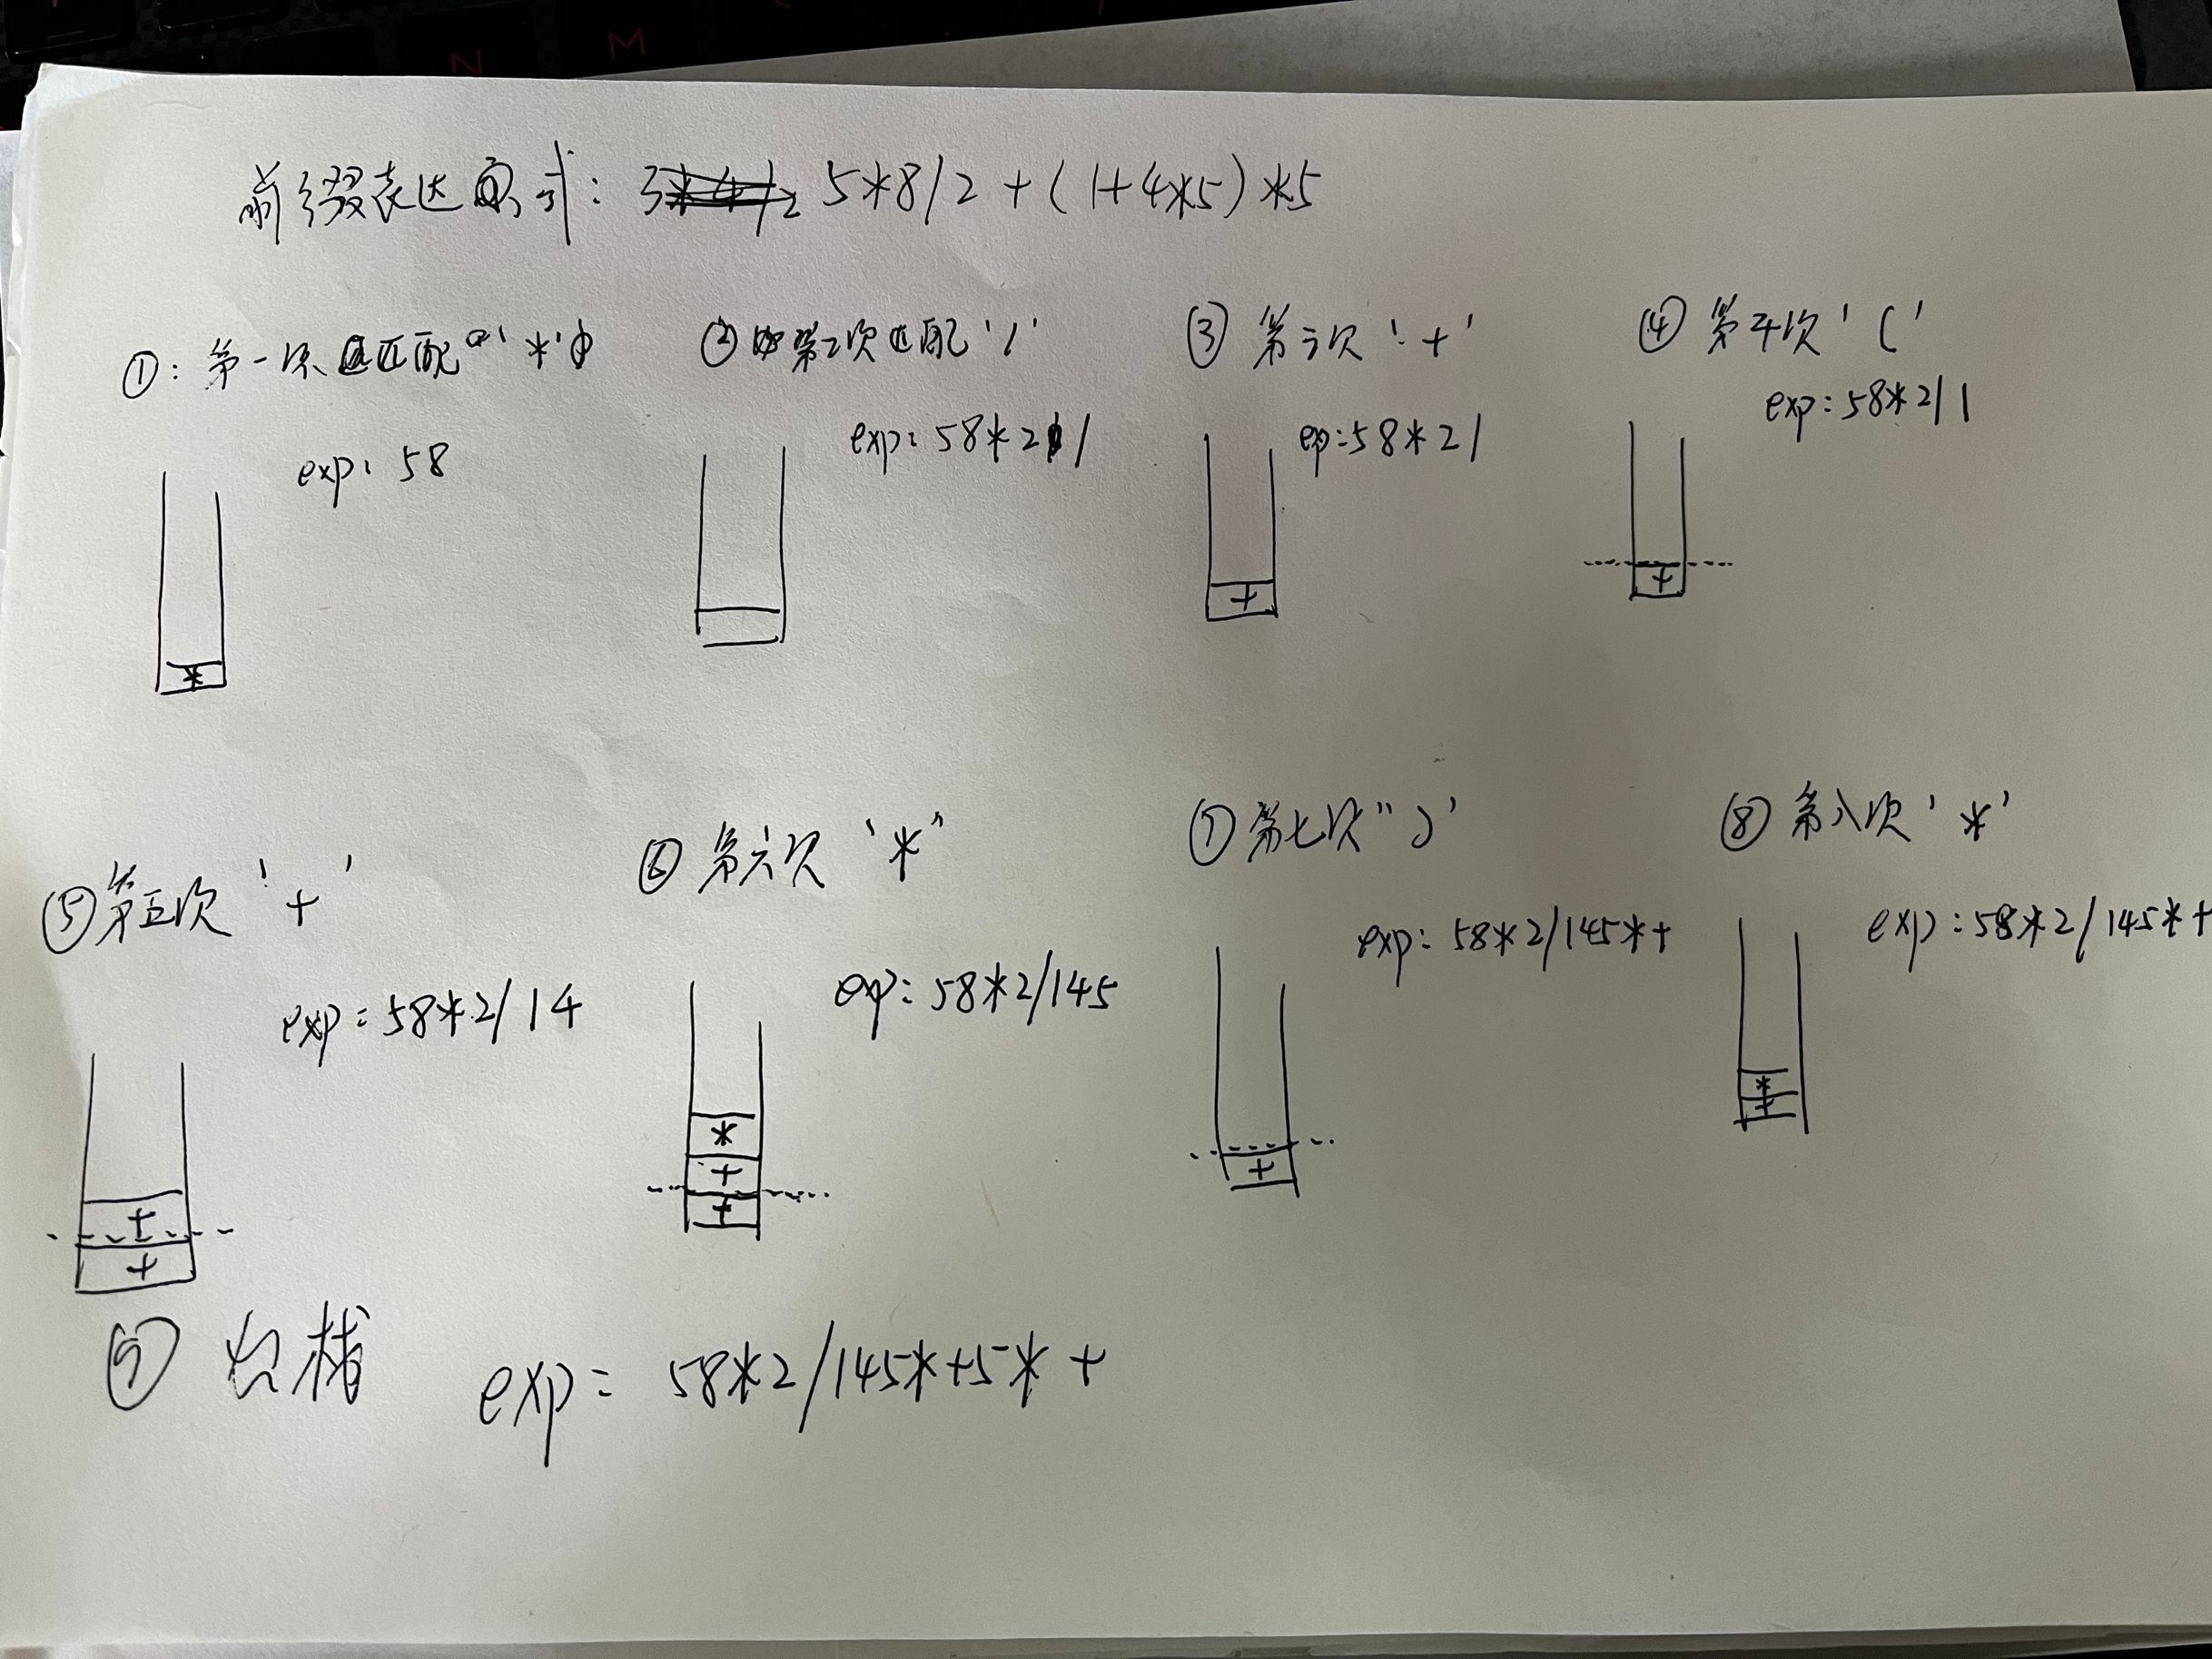 前缀表达式: 5*8/2+(1+4*5)*5
①: 第一次匹配'*'
exp: 58
*
②第2次匹配'/'
exp: 58*2/
③ 第三次'+'
exp:58*2/
+
④ 第四次'('
exp:58*2/1
+
⑤第五次'+'
exp:58*2/14
+
+
⑥ 第六次'*"
exp:58*2/145
*
+
+
⑦第七次")'
exp: 58*2/145*+
+
⑧ 第八次'*'
exp:58*2/145*+
*
+
⑨ 栈
exp= 58*2/145*+5*+